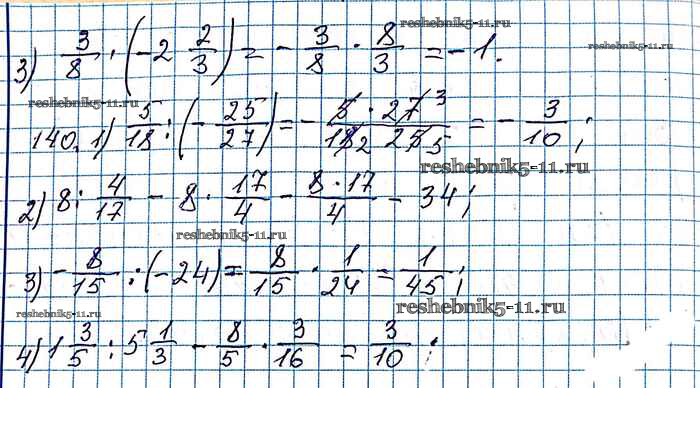 reshebnik5-11.ru
3) 3/8 · (-2 2/3) = - 3/8 · 8/3 = -1.
reshebnik5-11.ru
reshebnik5-11.ru
140. 1) 5/18 : (- 25/27) = - 5 · 27 3 / 18 2 25 5 = - 3/10;
reshebnik5-11.ru
2) 8 : 4/17 - 8 · 17/4 - 8 · 17/4 - 34;
reshebnik5-11.ru
3) - 8/15 : (-24) = 8/15 · 1/24 = 1/45;
reshebnik5-11.ru
4) 1 3/5 : 5 1/3 - 8/5 · 3/16 = 3/10;